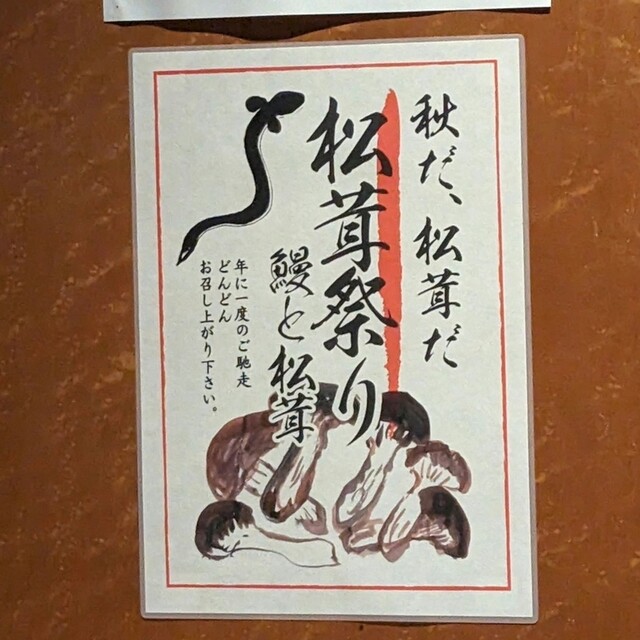 秋だ、松茸だ
松茸祭り
鰻と松茸
年に一度のご馳走
どんどん
お召し上がり下さい。